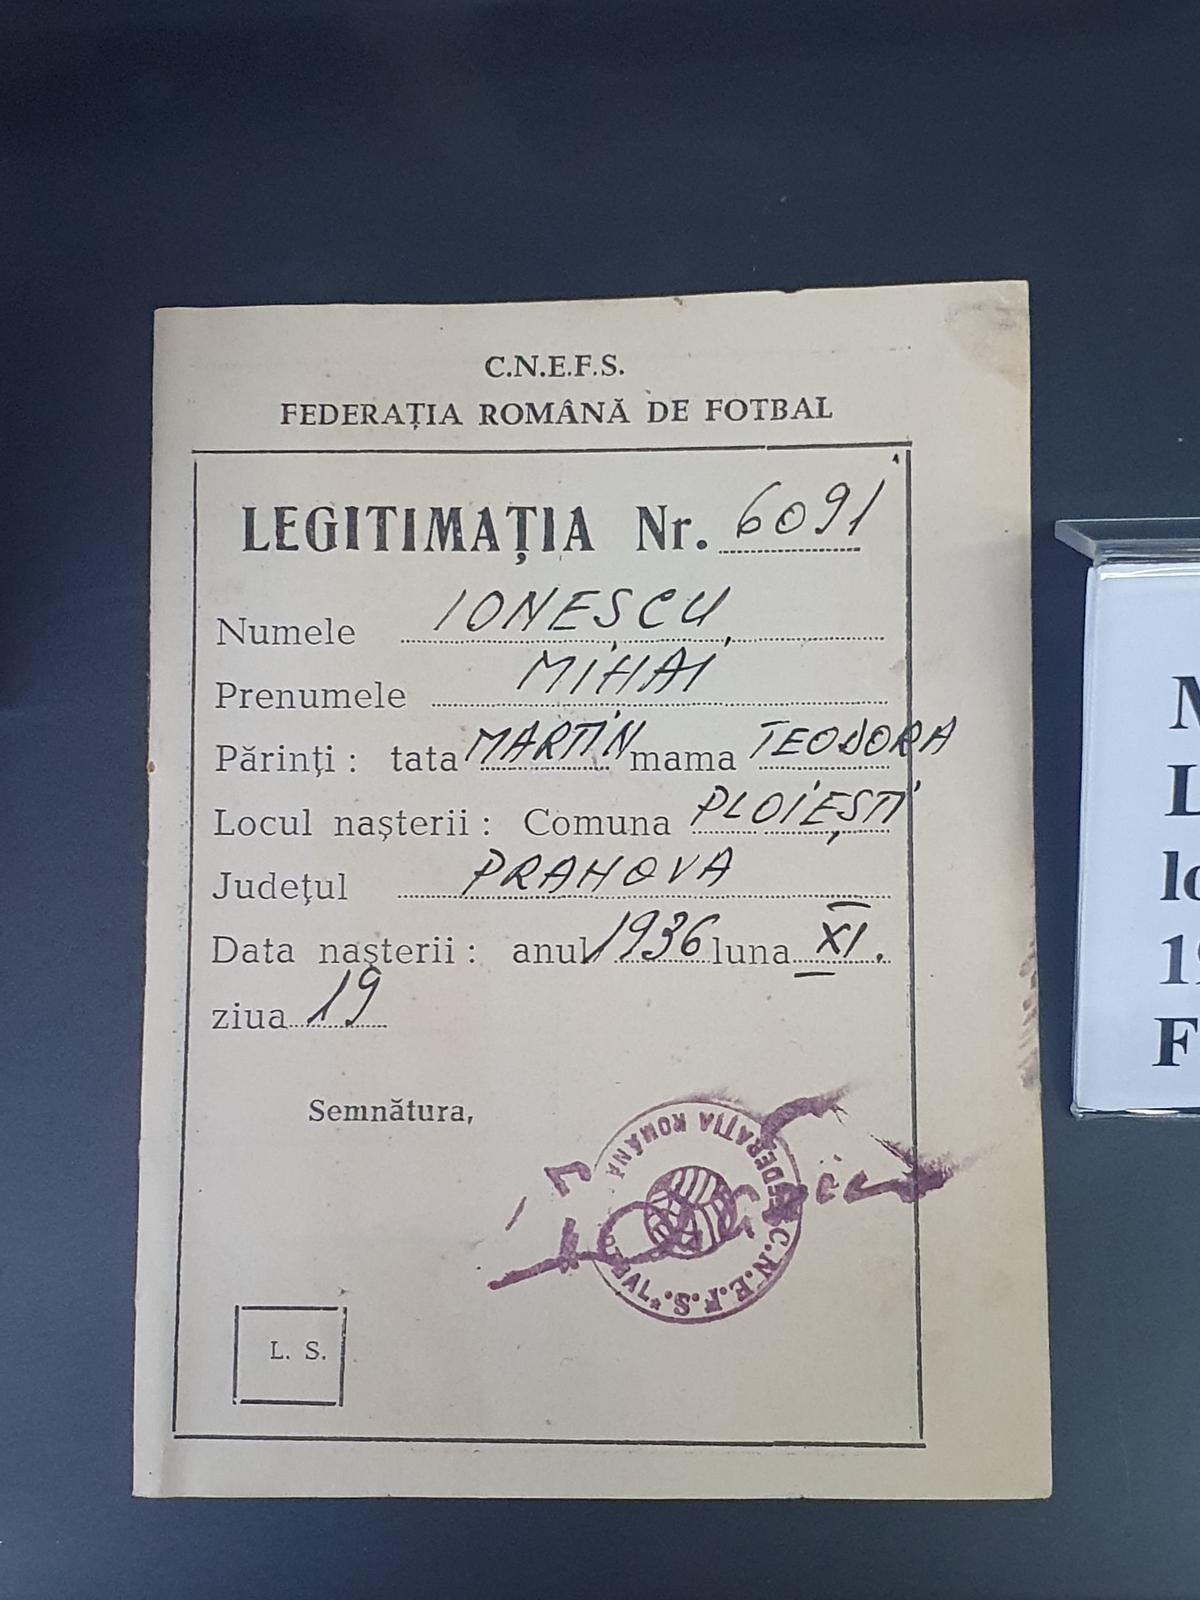 C.N.E.F.S.
FEDERAȚIA ROMÂNĂ DE FOTBAL
LEGITIMAȚIA Nr. 6091
Numele IONESCU
Prenumele MIHAI
Părinți : tata MARTIN mama TEODORA
Locul nașterii : Comuna PLOIEȘTI
Județul PRAHOVA
Data nașterii : anul 1936 luna XI.
ziua 19
Semnătura,
FEDERAȚIA ROMÂNĂ
C.N.E.F.S.
L. S.
L
19
F